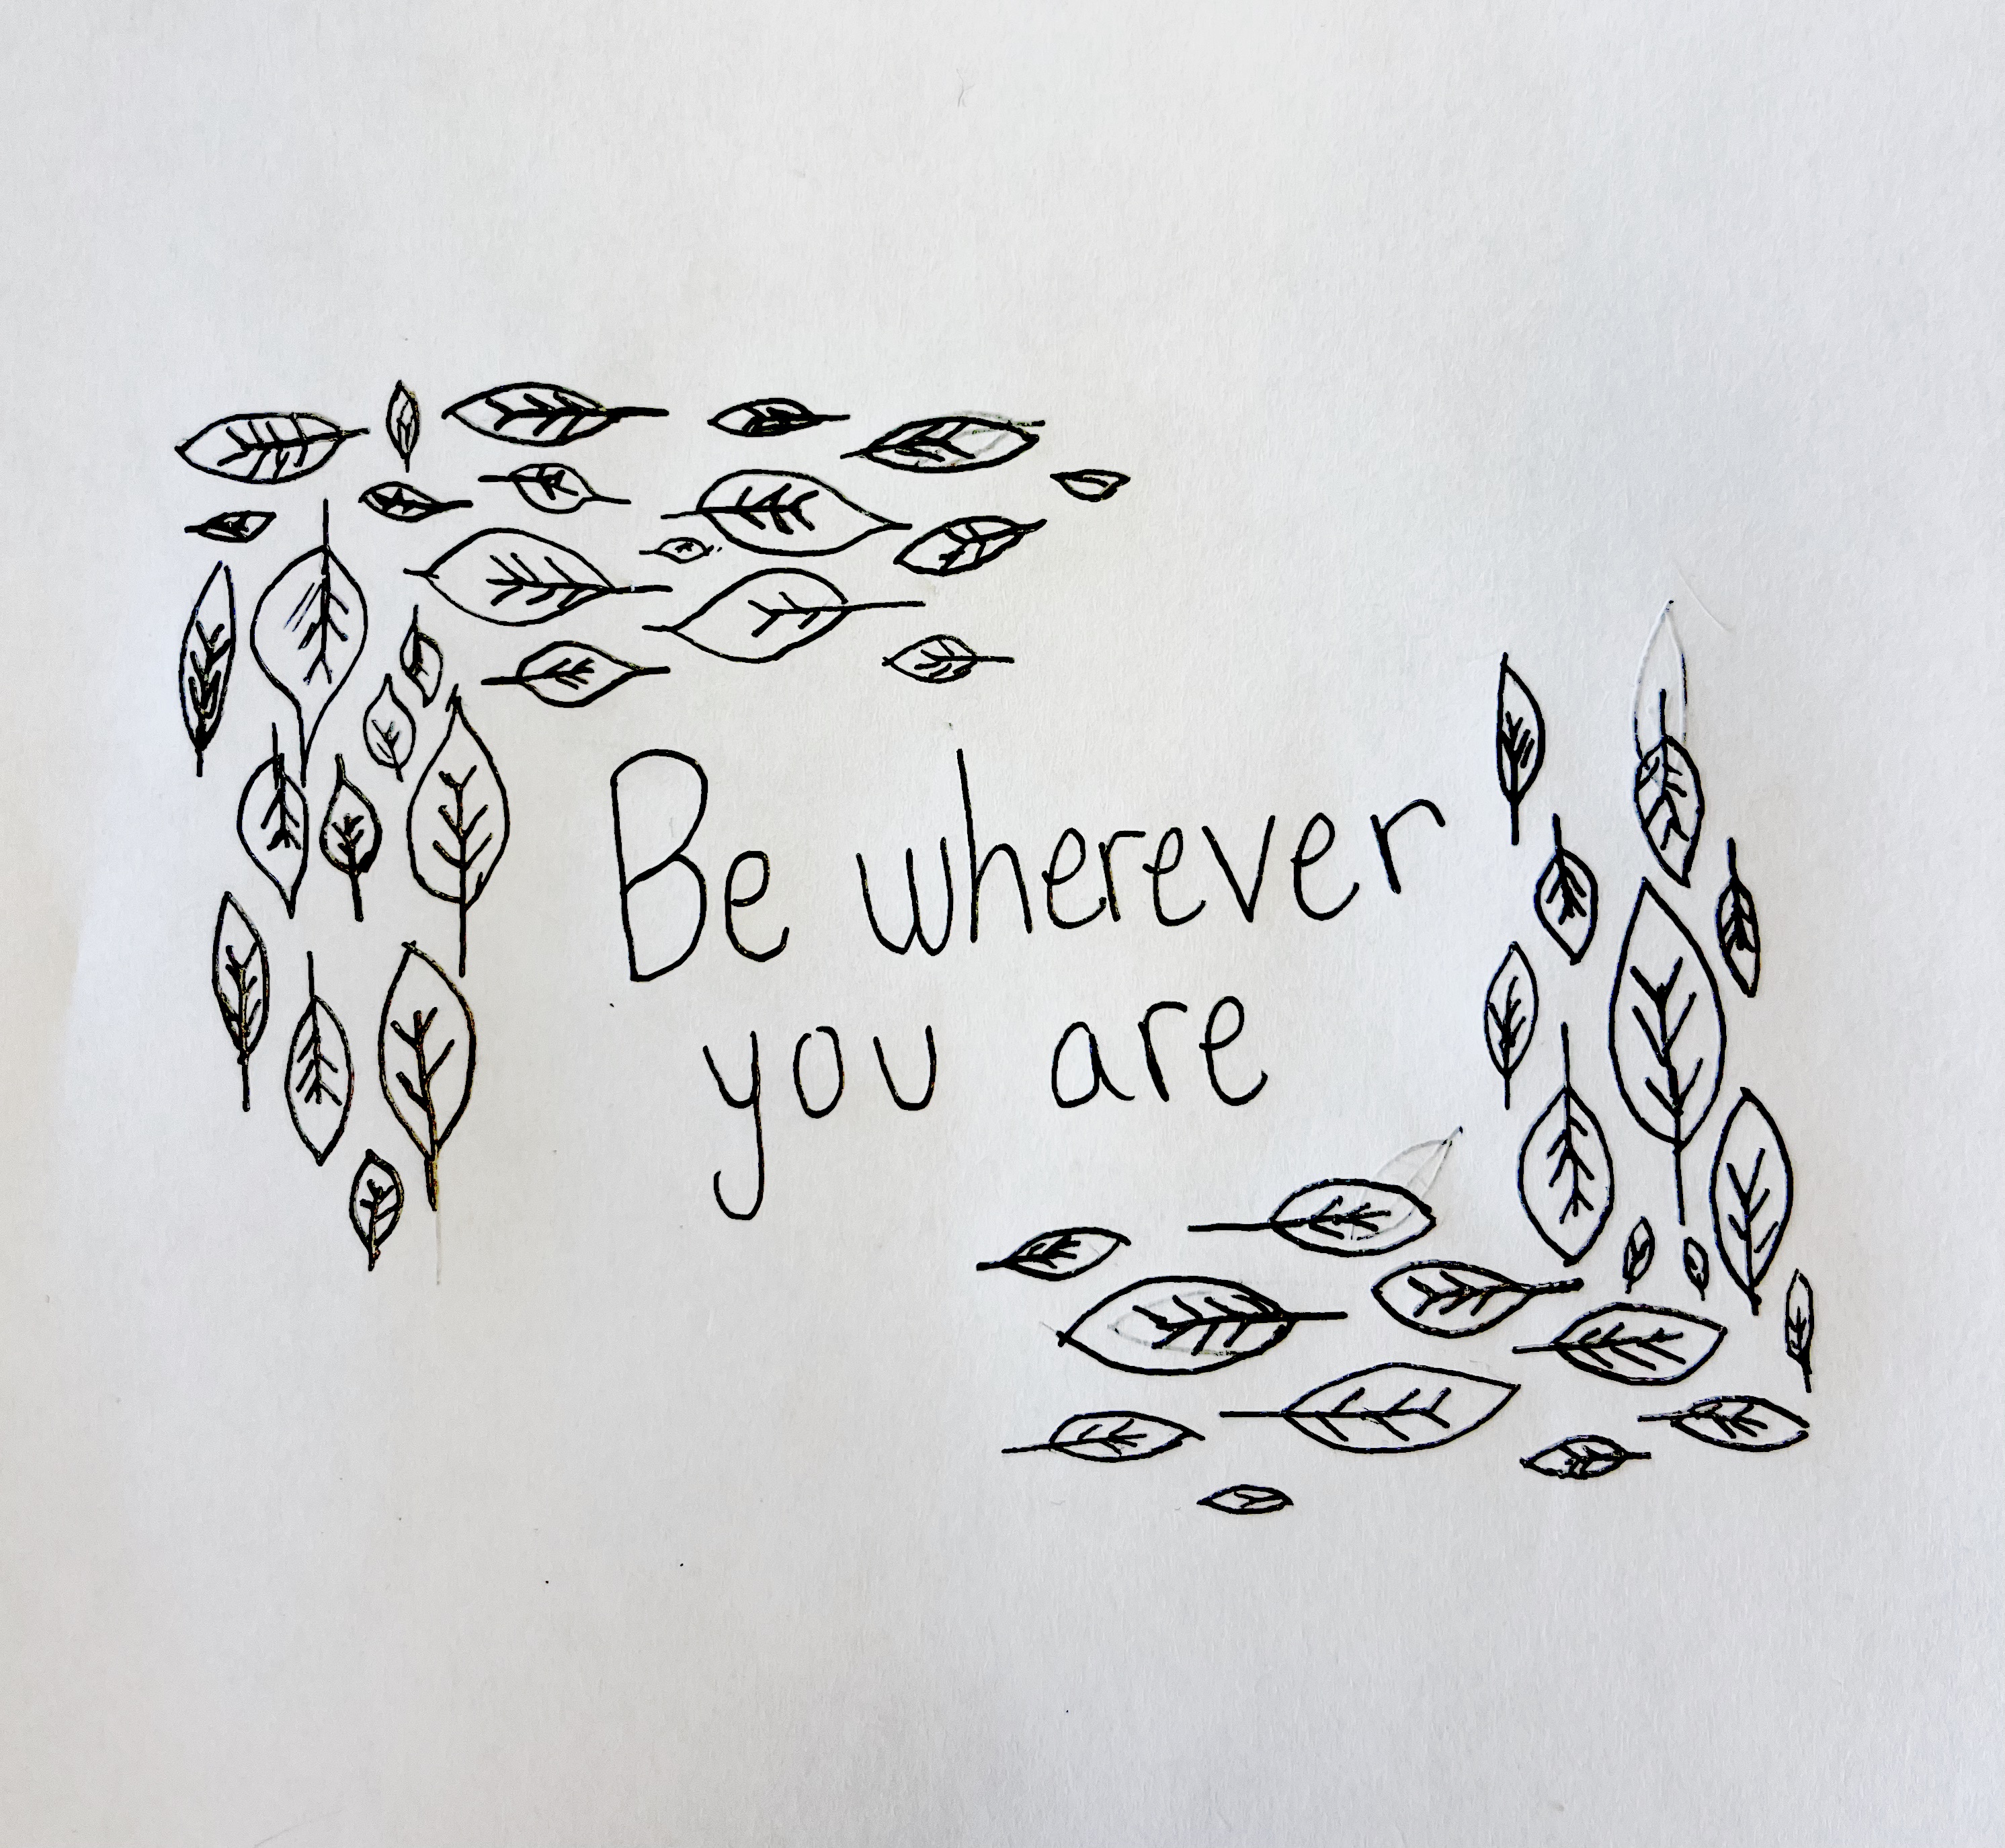 Be wherever
you are